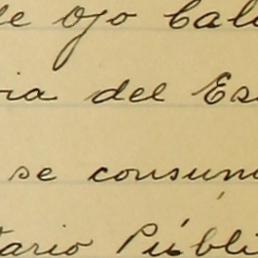 de Ojo Cal
ia del Es
se consum
tario Públi